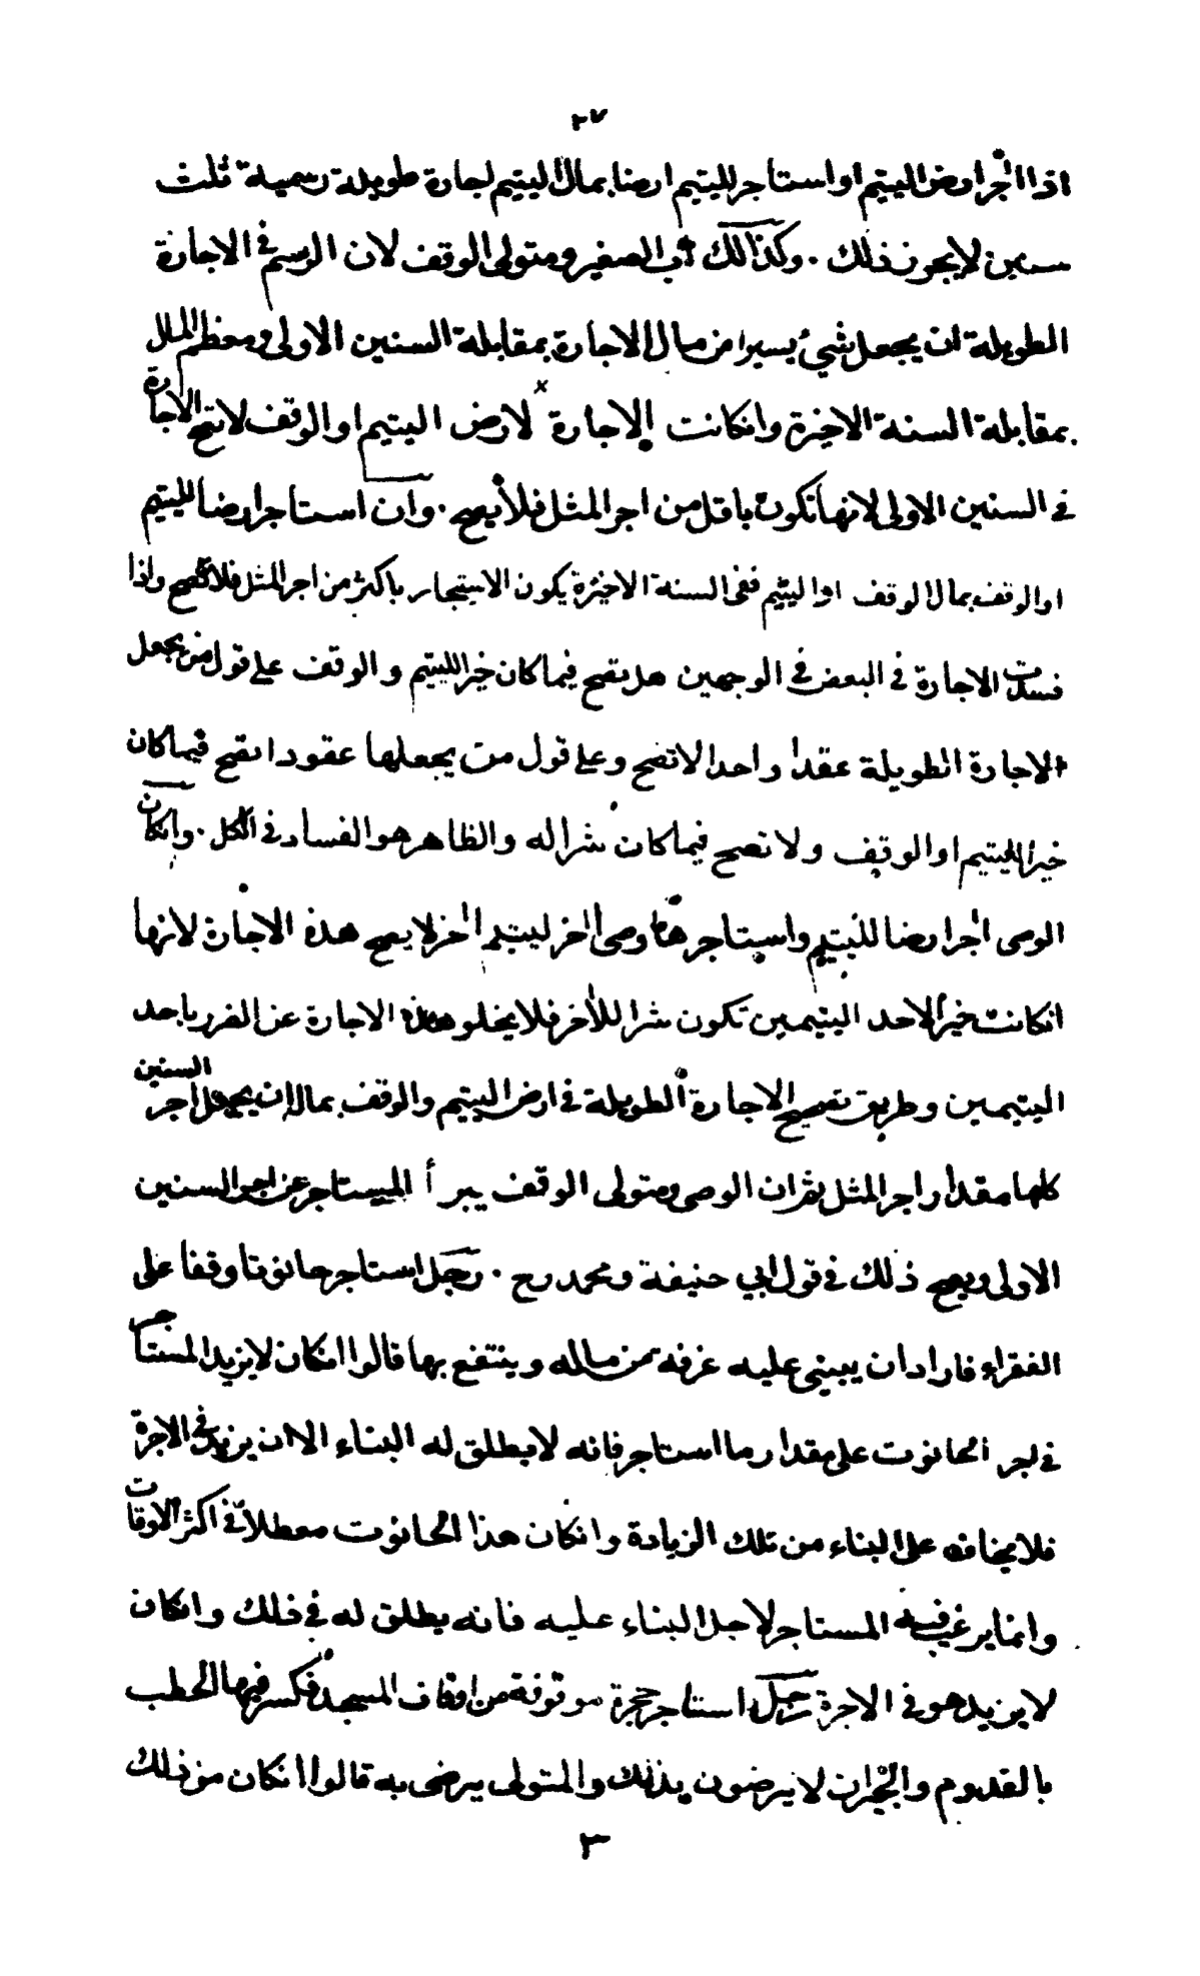 ٢٧
اذا اجر ارض اليتيم او استاجر لليتيم ارضا بمال اليتيم اجارة طويلة رسمية ثلث
سنين لا يجوز ذلك . وكذلك اب الصغير ومتولى الوقف لان الرسم في الاجارة
الطويلة ان يجعل شيئ يسيرا من مال الاجارة بمقابلة السنين الاولى ومعظم المال
بمقابلة السنة الاخيرة وانكانت الاجارة لارض اليتيم او الوقف لا تصح الاجارة
في السنين الاولى لانها تكون باقل من اجر المثل فلا يصح . وان استاجر ارضا لليتيم
او الوقف بمال الوقف او اليتيم ففى السنة الاخيرة يكون الاستيجار باكثر من اجر المثل فلا تصح واذا
فسدت الاجارة في البعض في الوجهين هل تصح فيما كان خيرا لليتيم والوقف على قول من يجعل
الاجارة الطويلة عقدا واحدا لا تصح وعلى قول من يجعلها عقودا تصح فيما كان
خيرا لليتيم او الوقف ولا تصح فيما كان شرا له والظاهر هو الفساد في الكل . وانكان
الوصى اجر ارضا لليتيم واستاجرها وصى اخر ليتيم اخر لا يصح هذه الاجارة لانها
انكانت خيرا لاحد اليتيمين تكون شرا للأخر فلا يخلو هذه الاجارة عن الضرر باحد
اليتيمين وطريق تصحيح الاجارة الطويلة في ارض اليتيم والوقف بماله ان يجعل اجر السنين
كلها مقدار اجر المثل ثم ان الوصى ومتولى الوقف يبرأ المستاجر عن اجر السنين
الاولى ويصح ذلك في قول ابي حنيفة ومحمد رح . رجل استاجر حانوتا وقفا على
الفقراء فاراد ان يبنى عليه غرفة من ماله وينتفع بها قالوا انكان لا يزيد المستاجر
في اجر الحانوت على مقدار ما استاجر فانه لا يطلق له البناء الا ان يزيد في الاجرة
فلا يخاف على البناء من تلك الزيادة وانكان هذا الحانوت معطلا في اكثر الاوقات
وانما يرغب فيه المستاجر لاجل البناء عليه فانه يطلق له في ذلك وانكان
لا يزيد هو في الاجرة رجل استاجر حجرة موقوفة من اوقاف المسجد فكسر فيها الحطب
بالقدوم والجيران لا يرضون بذلك والمتولى يرضى به قالوا انكان من ذلك
٣